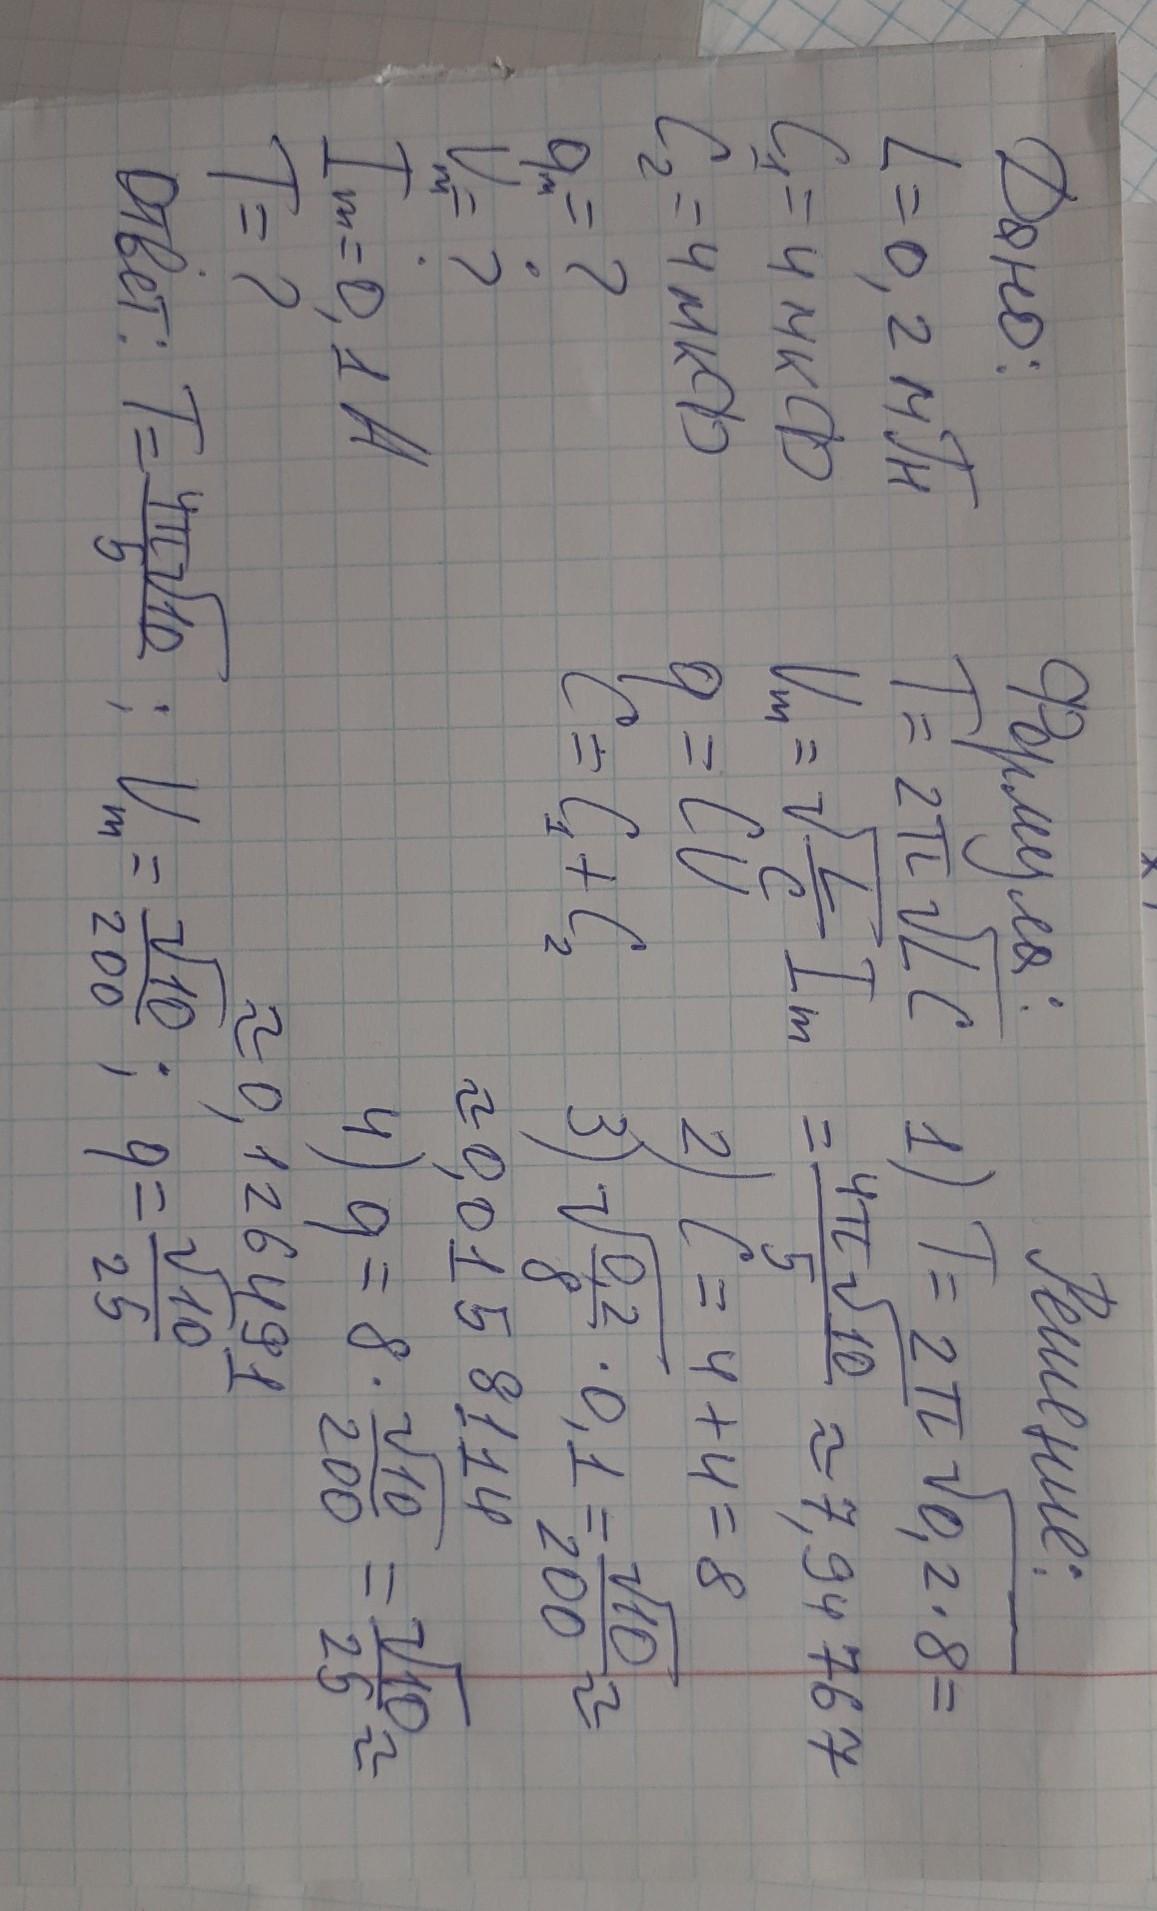 Дано:
L = 0,2 мГн
C₁ = 4 мкФ
C₂ = 4 мкФ
qₘ = ?
Uₘ = ?
Iₘ = 0,1 А
T = ?
Формула:
T = 2π√LC
Uₘ = √(L/C) Iₘ
q = CU
C = C₁ + C₂
Решение:
1) T = 2π√0,2·8 =
= 4π√10/5 ≈ 7,947 67
2) C = 4 + 4 = 8
3) √(0,2/8) · 0,1 = √10/200 ≈
≈ 0,0158114
4) q = 8 · √10/200 = √10/25 ≈
≈ 0,126491
Ответ: T = 4π√10/5 ; Uₘ = √10/200 ; q = √10/25